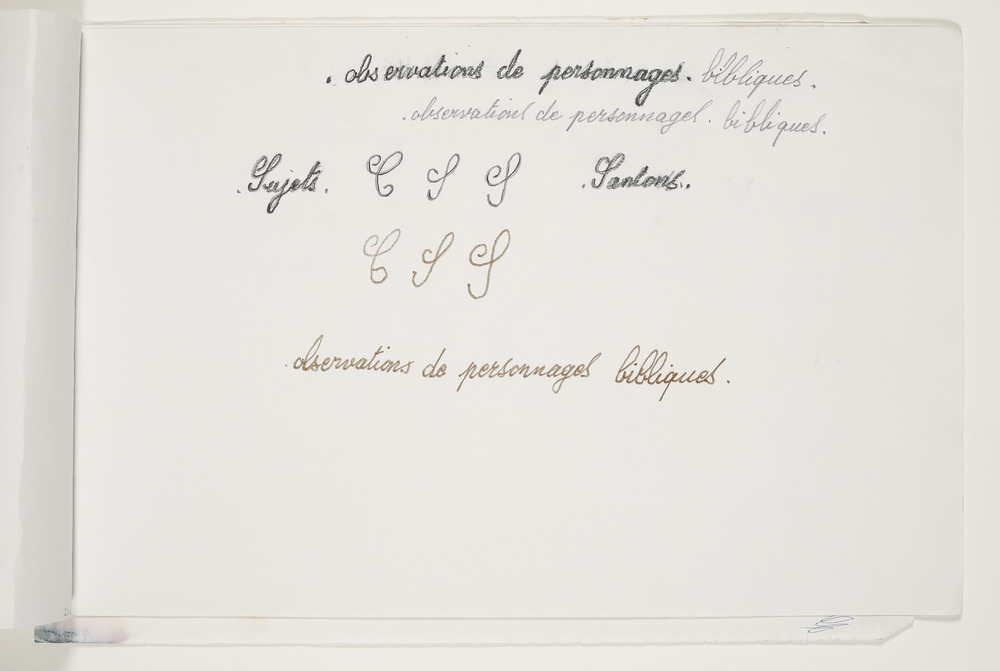 . observations de personnages. bibliques.
. observations de personnages. bibliques.
. Sujets. C S S . Santons..
C S S
. observations de personnages bibliques.